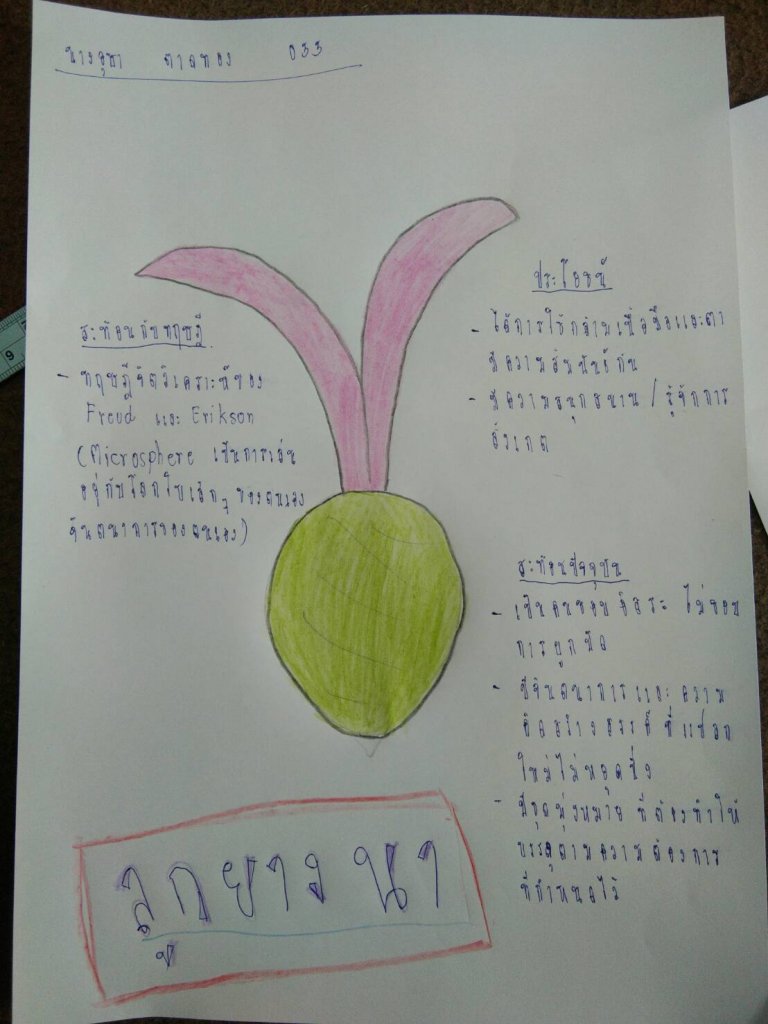 033
สะท้อนกับทฤษฎี
- ทฤษฎีจิตวิเคราะห์ของ
Freud และ Erikson
(Microsphere เป็นการเล่น
อยู่กับโลกใบเล็กๆ ของตนเอง
จินตนาการของตนเอง)
ประโยชน์
- ได้การใช้กล้ามเนื้อมือและตา
มีความสัมพันธ์กัน
- มีความสนุกสนาน / รู้จักการ
สังเกต
สะท้อนปัจจุบัน
- เป็นคนชอบอิสระ ไม่ชอบ
การผูกมัด
- มีจินตนาการและความ
คิดสร้างสรรค์ ที่แปลก
ใหม่ไม่หยุดนิ่ง
- มีจุดมุ่งหมาย ที่ต้องทำให้
บรรลุตามความต้องการ
ที่กำหนดไว้
ลูกยางนา